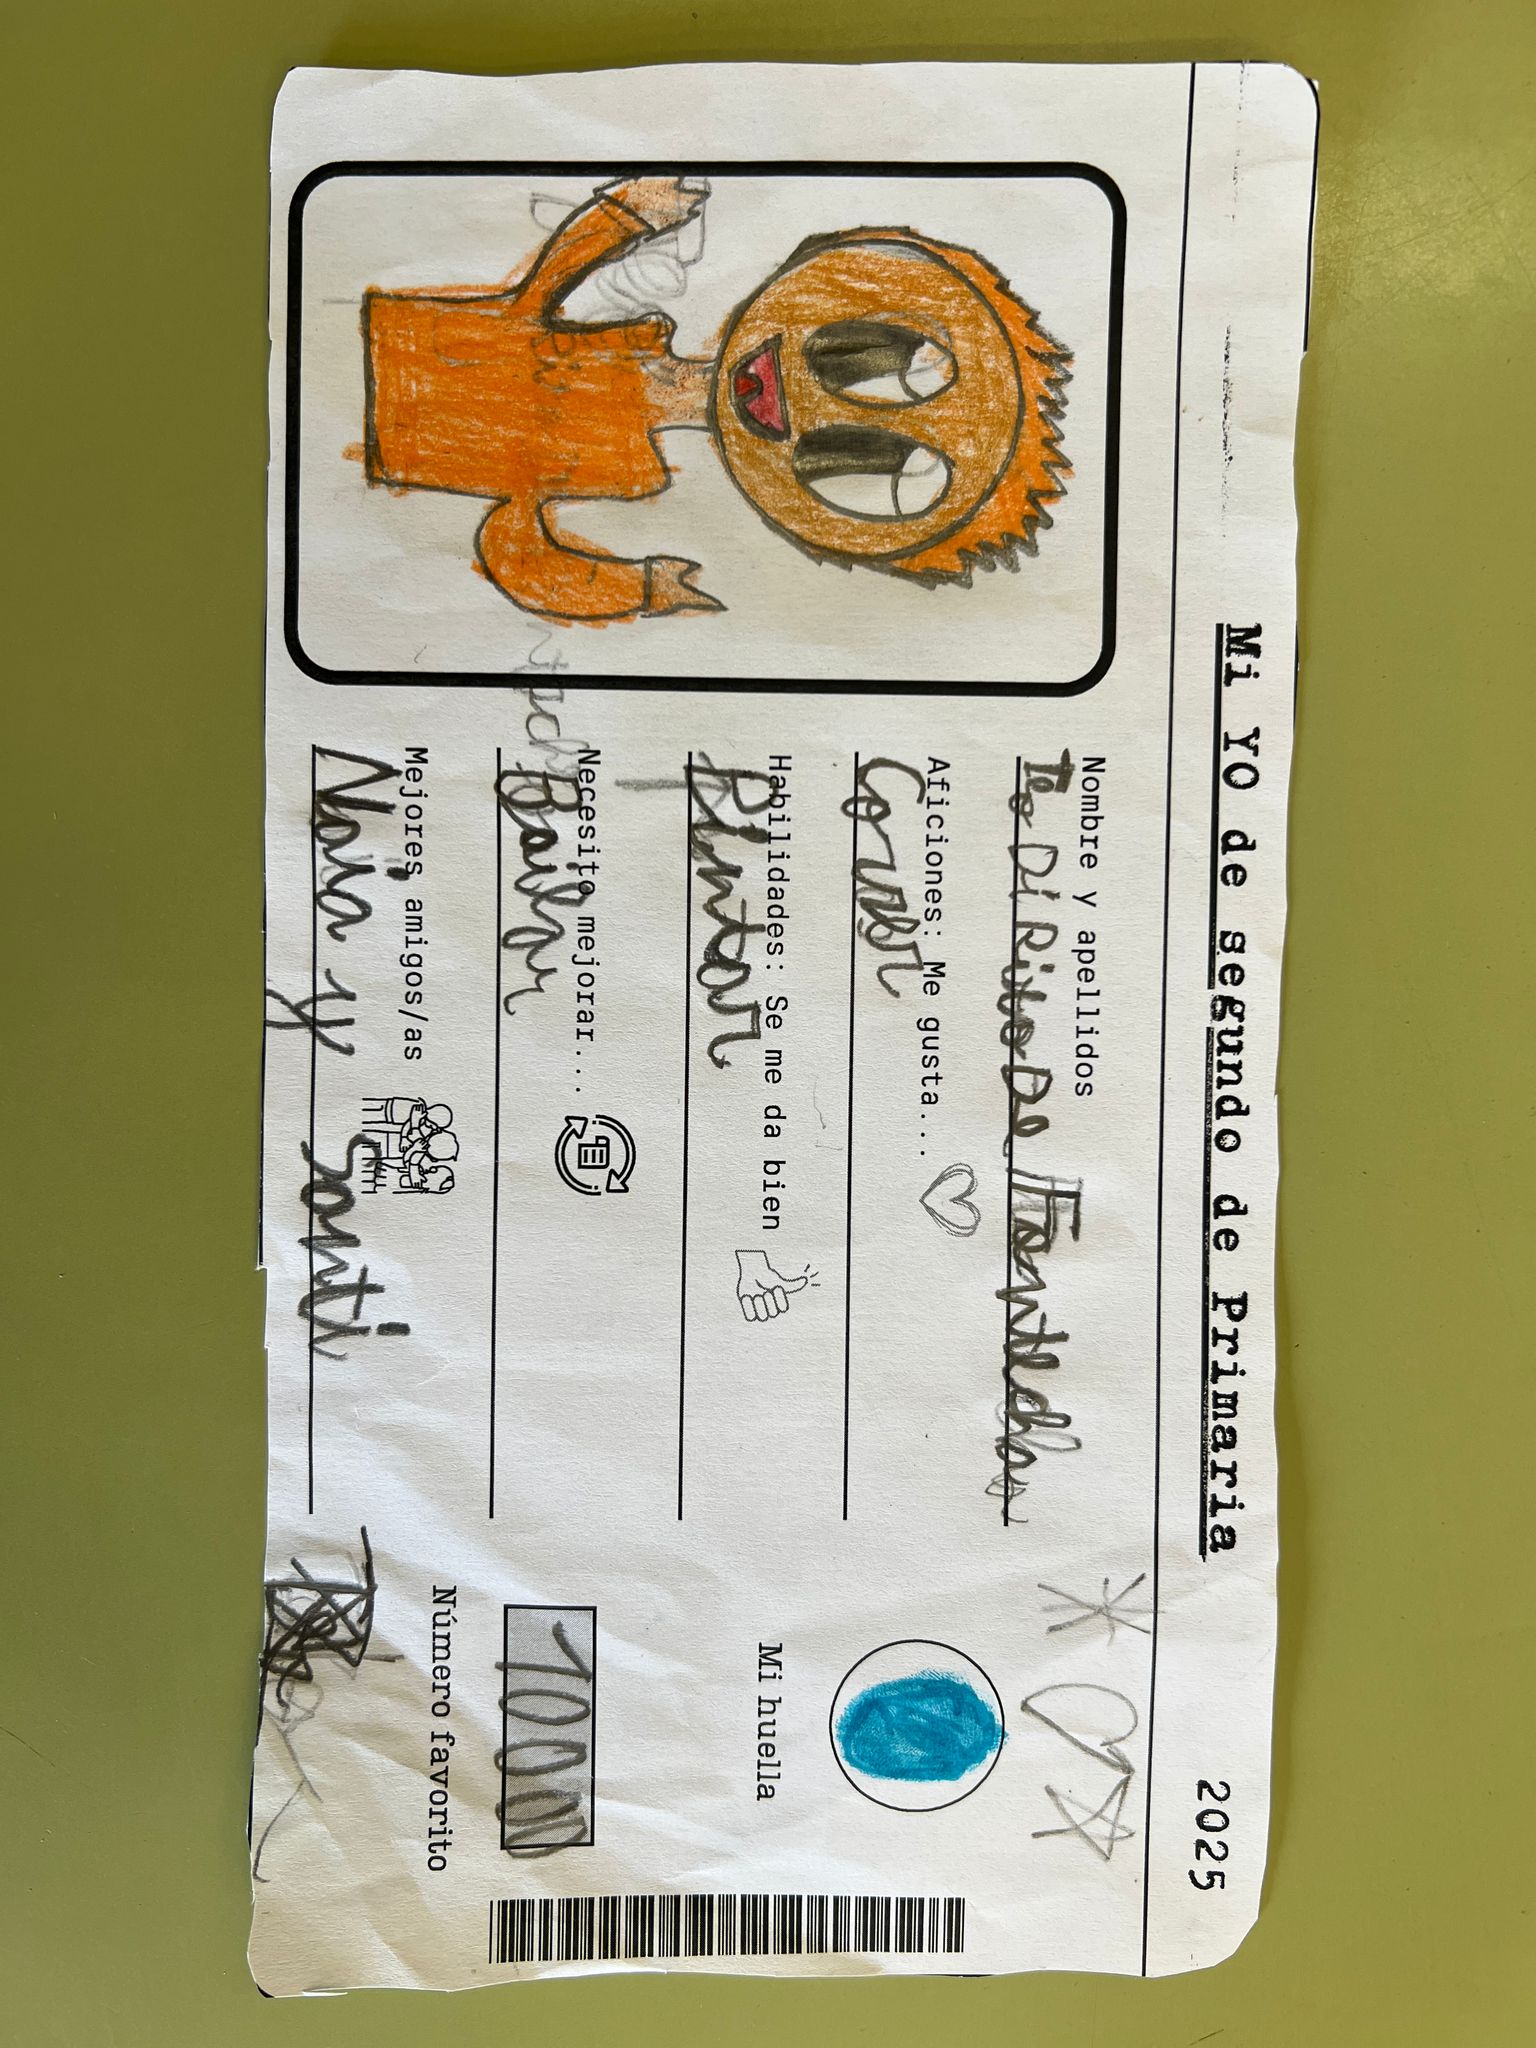 Mi YO de segundo de Primaria
2025
Nombre y apellidos
Teo Di Rito De Fontecha
Aficiones: Me gusta...
Correr
Habilidades: Se me da bien
Pintar
Necesito mejorar...
Bailar
Mejores amigos/as
Naia y Santi
Mi huella
10000
Número favorito